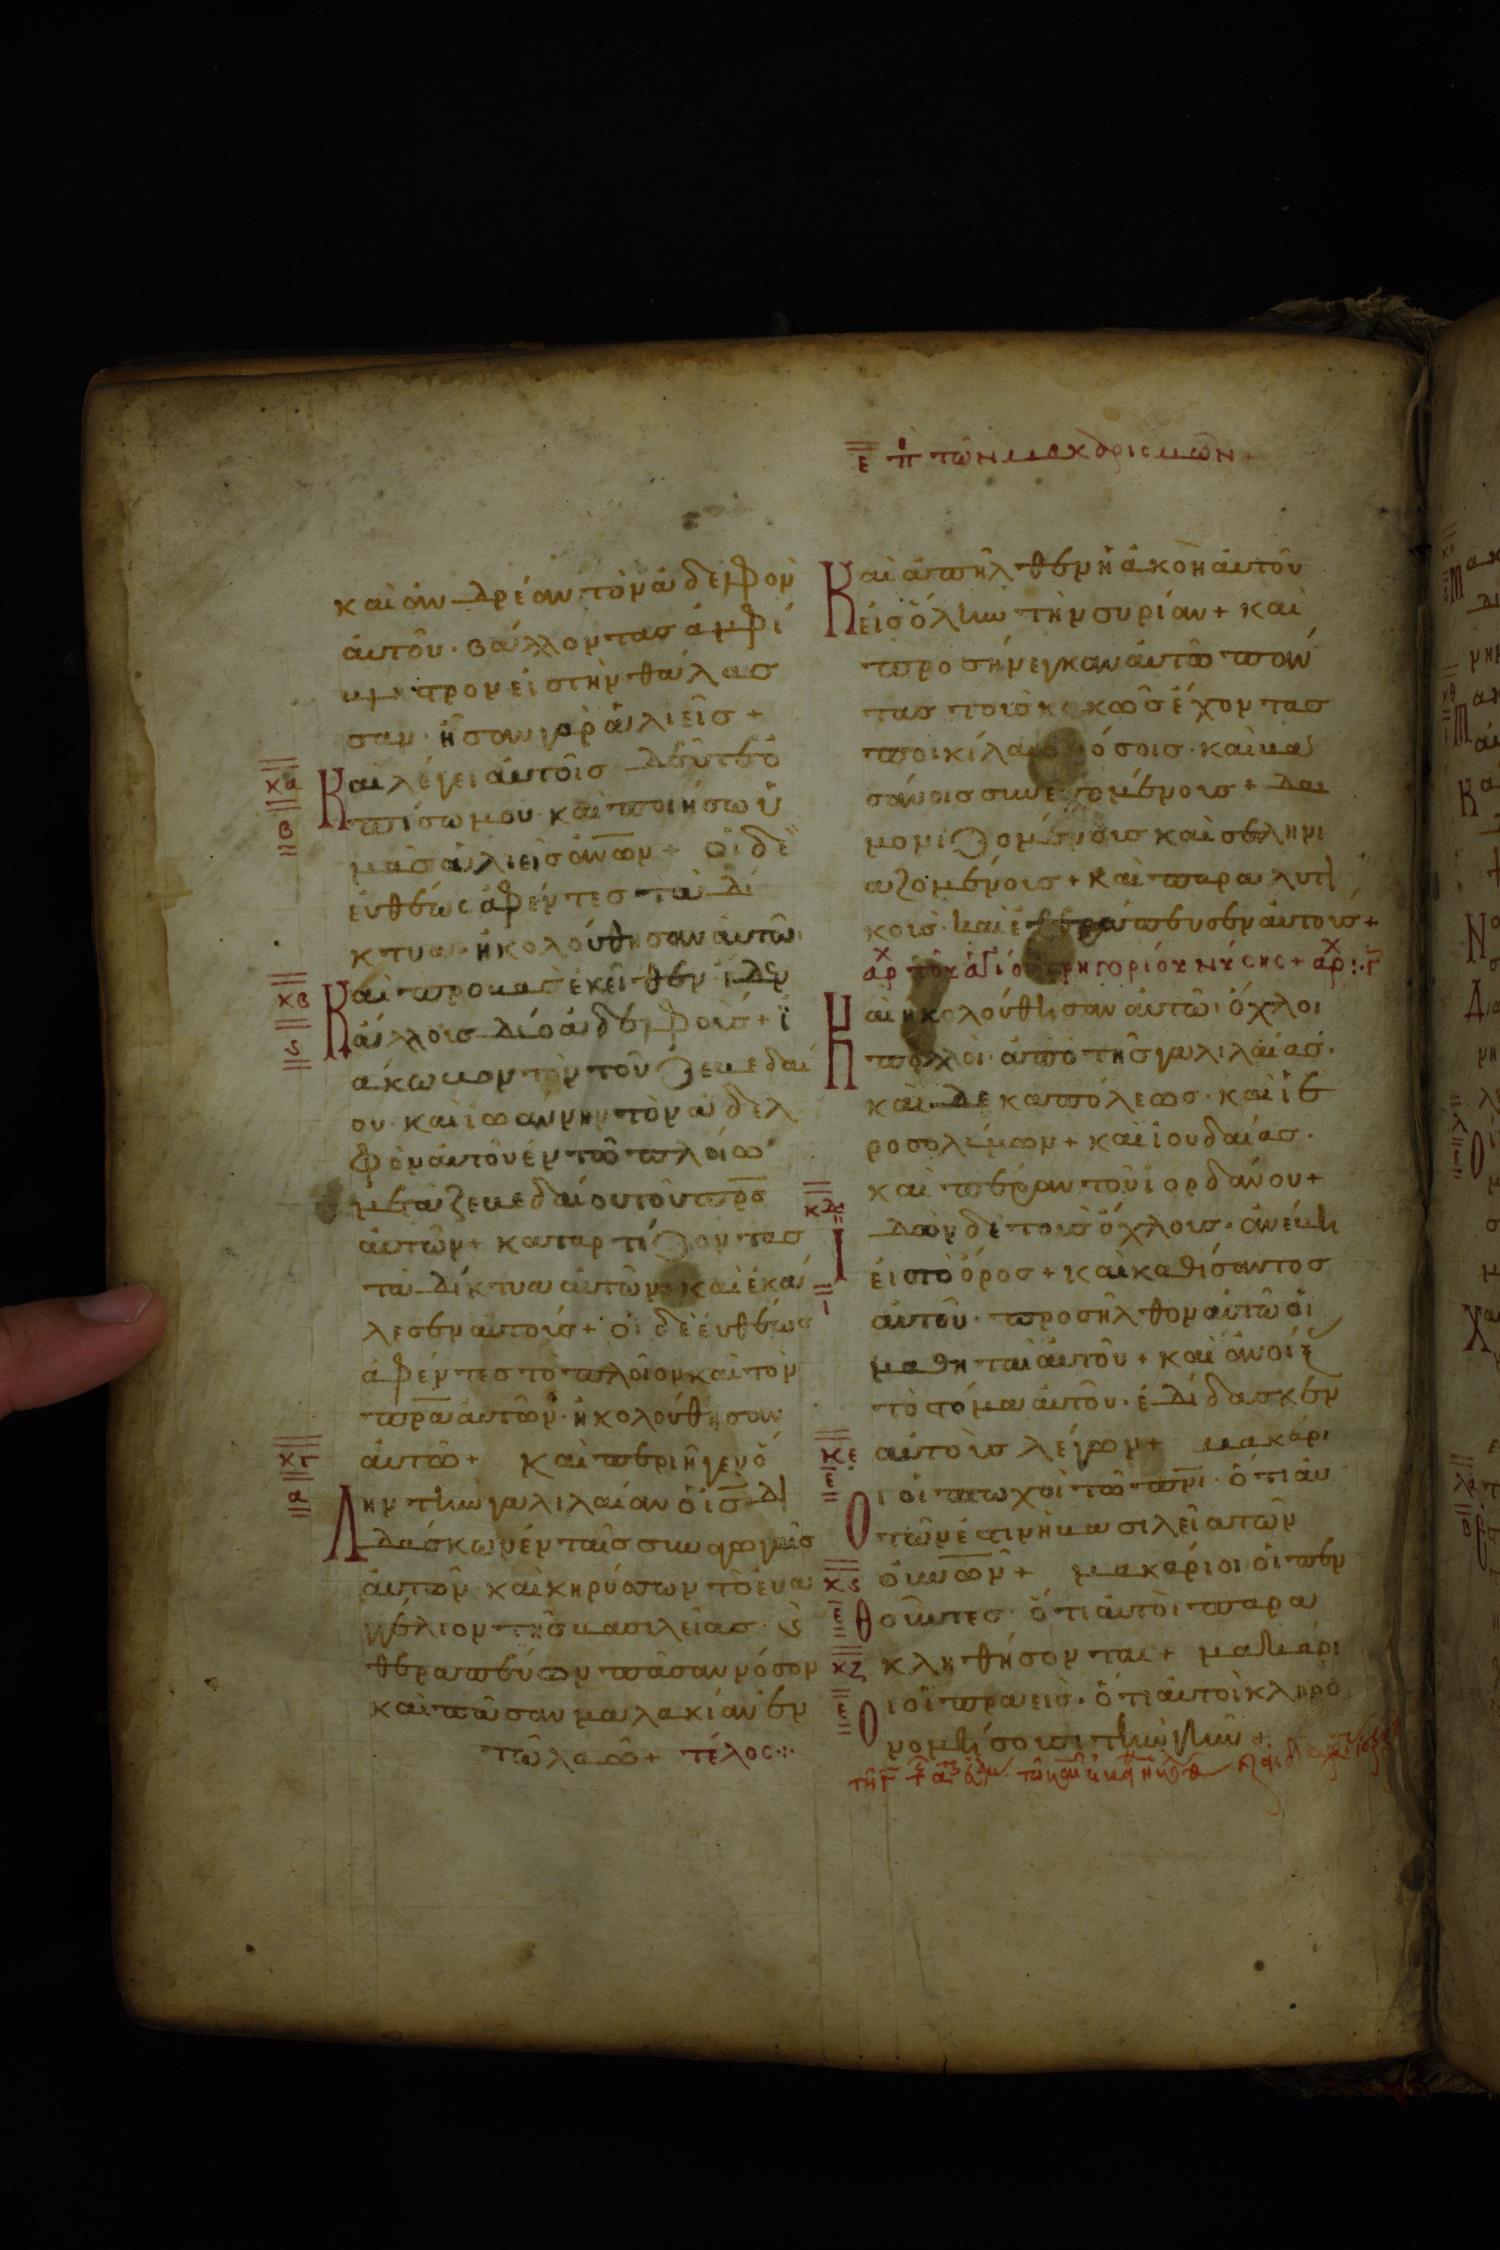 ε π τῶν μακαρισμῶν
καὶ ἀνδρέαν τὸν ἀδελφὸν
ἀυτοῦ· βάλλοντας ἀμφί
βληστρον εἰς τὴν θάλασ
σαν· ἦσαν γὰρ ἁλιεῖς +
κα
β
Καὶ λέγει ἀυτοῖς δεῦτε ὀ
πίσω μου· καὶ ποιήσω ὑ
μᾶς ἁλιεῖς ἀν̅ω̅ν + οἱ δὲ
ἐυθέως ἀφέντες τὰ δί
κτυα· ἠκολούθησαν ἀυτῶ·
κβ
ϛ
Καὶ προβὰς ἐκεῖθεν ἴδεν
ἄλλοις δύο ἀδελφοὺς + ἰ
άκωβον τὸν τοῦ ζεβεδαί
ου· καὶ ἰωάννην τὸν ἀδελ
φὸν ἀυτοῦ ἐν τῶ πλοίω
μετὰ ζεβεδαίου τοῦ π̅ρ̅ς
ἀυτῶν + καταρτίζοντας
τὰ δίκτυα ἀυτῶν· καὶ ἐκά
λεσεν αὐτούς + οἱ δὲ ἐυθέως
ἀφέντες τὸ πλοῖον καὶ τὸν
π̅ρ̅α ἀυτῶν· ἠκολούθησαν
κγ
α
ἀυτῶ + Καὶ περιῆγεν ὅ
λην τὴν γαλιλαίαν ὁ ι̅ς̅ δι
δάσκων ἐν ταῖς συναγωγαῖς
ἀυτῶν· καὶ κηρύσσων τὸ ἐυα
γγέλιον τῆς βασιλείας· ϗ
θεραπεύων πᾶσαν νόσον
καὶ πᾶσαν μαλακίαν ἐν
τῶ λαῶ + τέλος
Καὶ ἀπῆλθεν ἡ ἀκοὴ ἀυτοῦ
εἰς ὅλην τὴν συρίαν + καὶ
προσήνεγκαν ἀυτῶ πάν
τας τοὺς κακῶς ἔχοντας
ποικίλαις νόσοις· καὶ βα
σάνοις συνεχομένοις + δαι
μονιζομένοις καὶ σεληνι
αζομένοις + καὶ παραλυτι
κοὺς· καὶ ἐθεράπευσεν ἀυτούς +
αρχ τοῦ ἁγίου γρηγορίου νύσης + αρχ
Καὶ ἠκολούθησαν ἀυτῶ ὄχλοι
πολλοὶ· ἀπὸ τῆς γαλιλαίας·
καὶ δεκαπόλεως· καὶ ἱε
ροσολύμων + καὶ ἰουδαίας·
καὶ πέραν τοῦ ἰορδάνου +
κδ
ι
Ἰδὼν δὲ τοὺς ὄχλους· ἀνέβη
εἰς τὸ ὄρος + καὶ καθίσαντος
ἀυτοῦ· προσῆλθον ἀυτῶ οἱ
μαθηταὶ ἀυτοῦ + καὶ ἀνοίξ
τὸ στόμα ἀυτοῦ· ἐδίδασκεν
κε
ε
αὐτοὺς λέγων + μακάρι
οι οἱ πτωχοὶ τῶ π̅ν̅ι· ὅτι ἀυ
τῶν ἐστιν ἡ βασιλεία τῶν
κϛ
ε
οὐν̅ω̅ν + μακάριοι οἱ πεν
θοῦντες· ὅτι ἀυτοὶ παρα
κζ
ε
κληθήσονται + μακάρι
οι οἱ πραεῖς· ὅτι ἀυτοὶ κληρο
νομήσουσι τὴν γῆν +